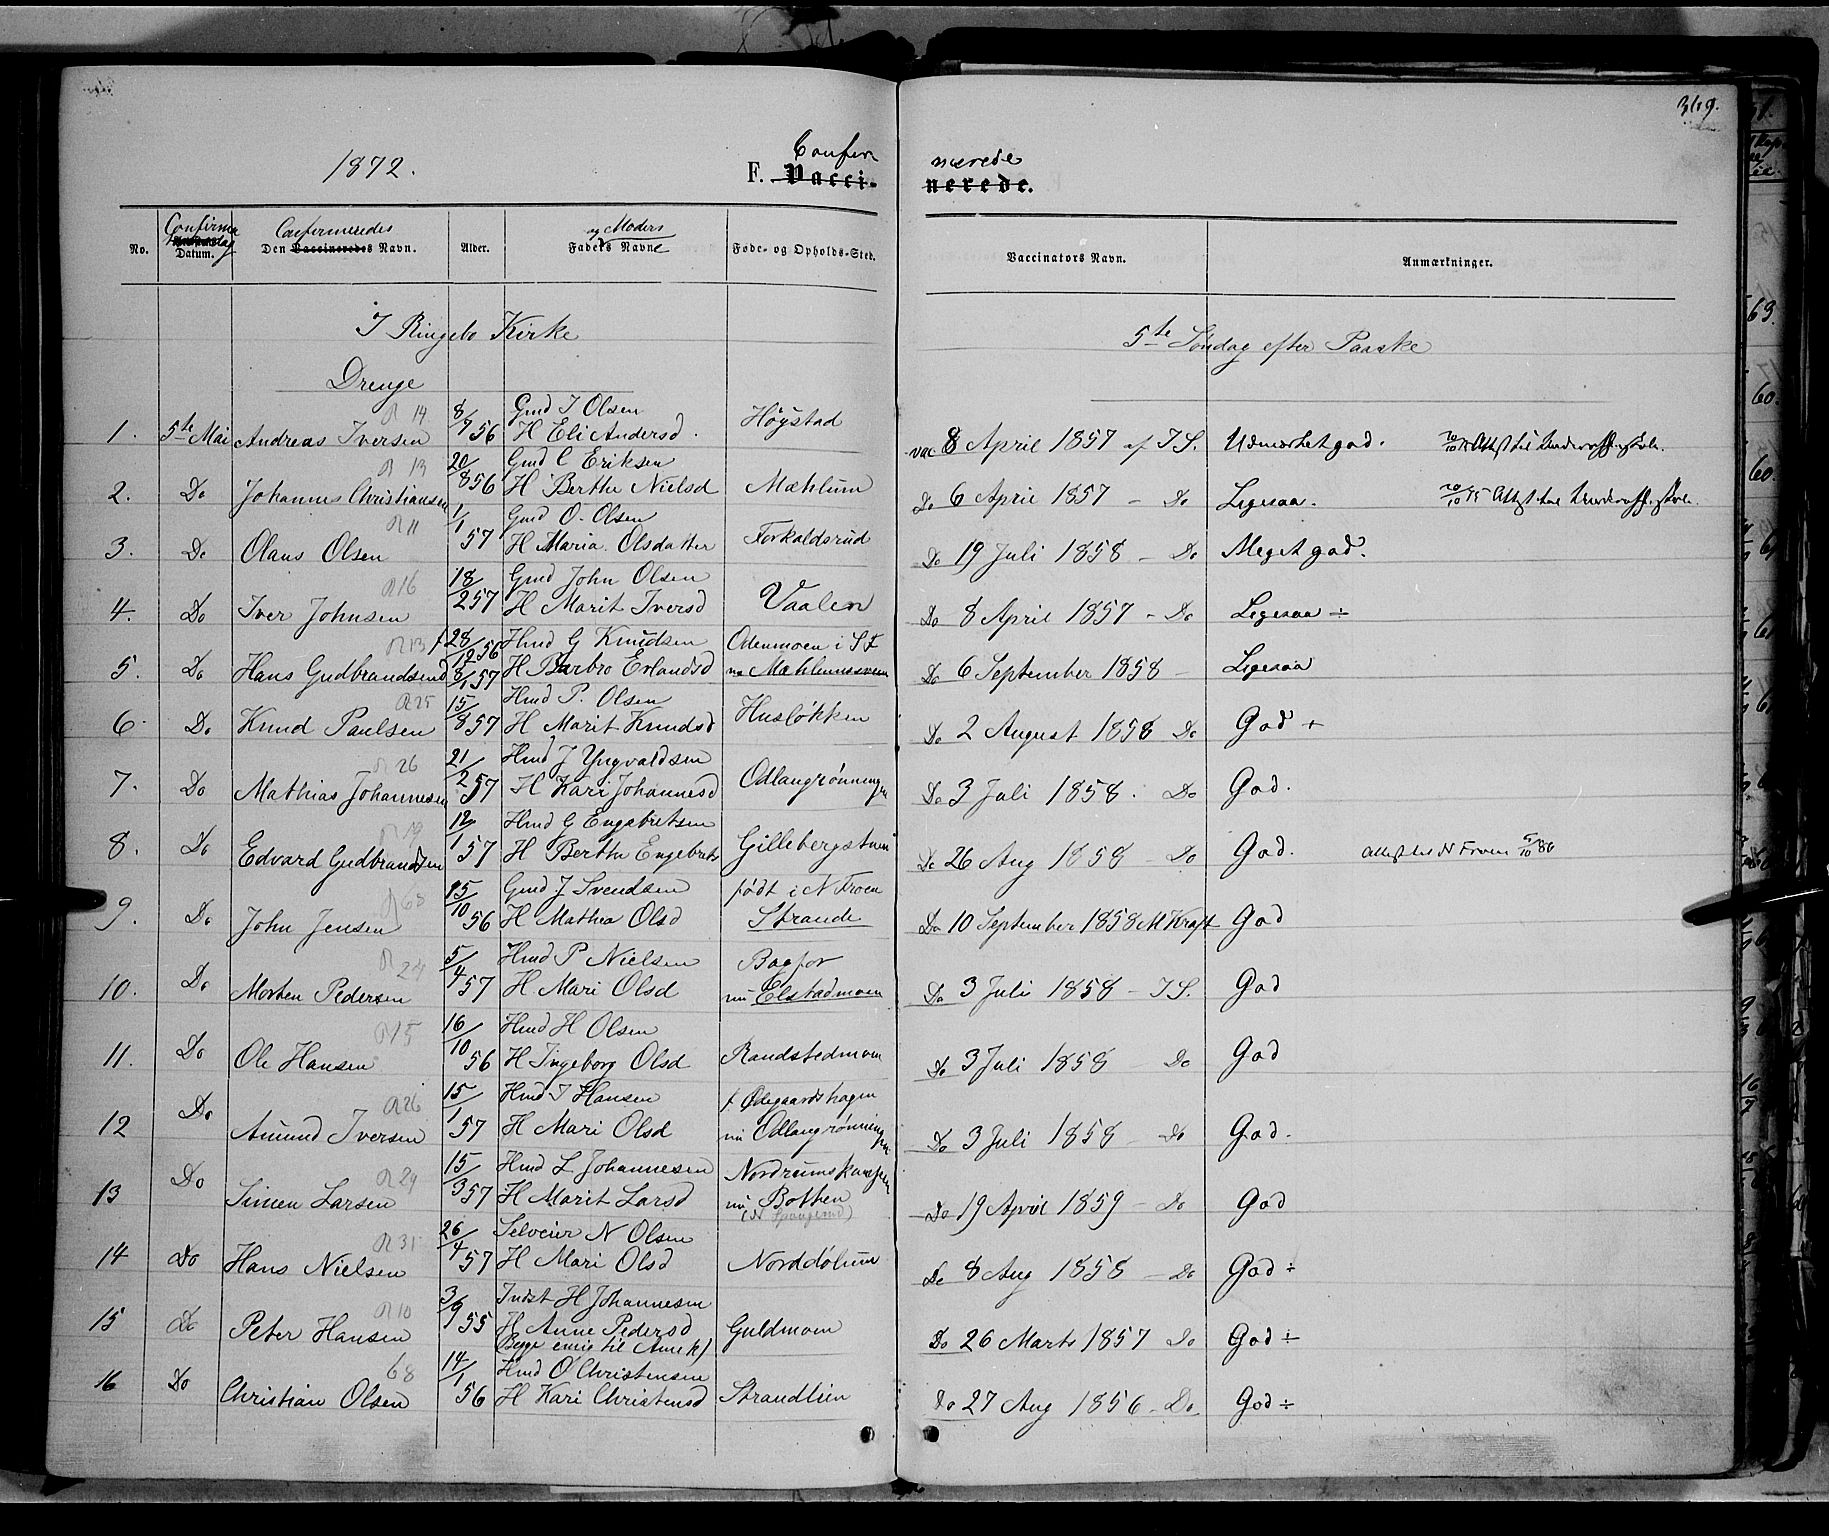 369.
1872.
Confir merede
F. Vacci- nerede.
No.
Confirma
Datum.
Confirmeredes
Den Vaccineredes Navn.
Alder.
og Moders
Faders Navne
Føde- og Opholds-Sted.
Vaccinators Navn.
Anmærkninger.
I Ringebo Kirke
5te Søndag efter Paaske
Drenge
R 14 8/7 56 Gmd I Olsen
1. 5te Mai Andreas Iversen H Eli Andersd. Høystad vac 8 April 1857 af I.S. Udmærket god.
R 13 20/8 56 Gmd C Eriksen
2. Do Johannes Christiansen H Berthe Nielsd Mæhlum Do 6 April 1857 - Do Ligesaa.
R 11 1/1 57 Gmd O. Olsen
3. Do Olaus Olsen H Maria Olsdatter Forkaldsrud Do 19 Juli 1858 - Do Meget god.
R 16 18/2 57 Gmd John Olsen
4. Do Iver Johnsen H Marit Iversd Vaalen Do 8 April 1857 - Do Ligesaa ÷
R 13 f 28/12 56 Hmd G Knudsen Odenmoen i S F
5. Do Hans Gudbrandsen d 8/1 57 H Barbro Erlandsd nu Mæhlumsveen Do 6 September 1858 - Ligesaa
R 25 15/8 57 Hmd P. Olsen
6. Do Knud Paulsen H Marit Knudsd Husløkken Do 2 August 1858 Do God +
R 26 21/2 57 Hmd J Yngvaldsen
7. Do Mathias Johannesen H Kari Johannesd Odlangrønningen Do 3 Juli 1858. Do God.
R 19 12/1 57 Hmd G Engebretsen
8. Do Edvard Gudbrandsen H Berthe Engebrets Gillebergstuen Do 26 Aug 1858 - Do God. Attest til N Froen 5/10 86
R 63 15/10 56 Gmd J Svendsen født i N Froen
9. Do John Jensen H Mathea Olsd Strande Do 10 September 1858 M Kraft God
R 24 5/4 57 Hmd P Nielsen Bagfor
10. Do Morten Pedersen H Mari Olsd nu Elstadmoen Do 3 Juli 1858 - I S. God
R 15 16/10 56 Hmd H Olsen
11. Do Ole Hansen H Ingeborg Olsd Randstedmoen Do 3 Juli 1858 - Do God
R 26 15/1 57 Hmd I Hansen f. Ødegaardshagen
12 Do Amund Iversen H Mari Olsd nu Odlangrønningen Do 3 Juli 1858 - Do God.
R 24 15/3 57 Hmd L Johannesen Nordrumskampen
13 Do Simen Larsen H Marit Larsd nu Botten Do 19 April 1859 - Do God
R 31 26/4 57 Selveier N Olsen
14 Do Hans Nielsen H Mari Olsd Norddølum Do 8 Aug 1858 - Do God ÷
R 10 3/9 55 Indst H Johannesen
15 Do Peter Hansen H Anne Pedersd Guldmoen Do 26 Marts 1857 Do God ÷
(Begge emig til Amrk)
68 14/1 56 Hmd O Christensen
16 Do Christian Olsen H Kari Christensd Strandlien Do 27 Aug 1856 - Do God ÷